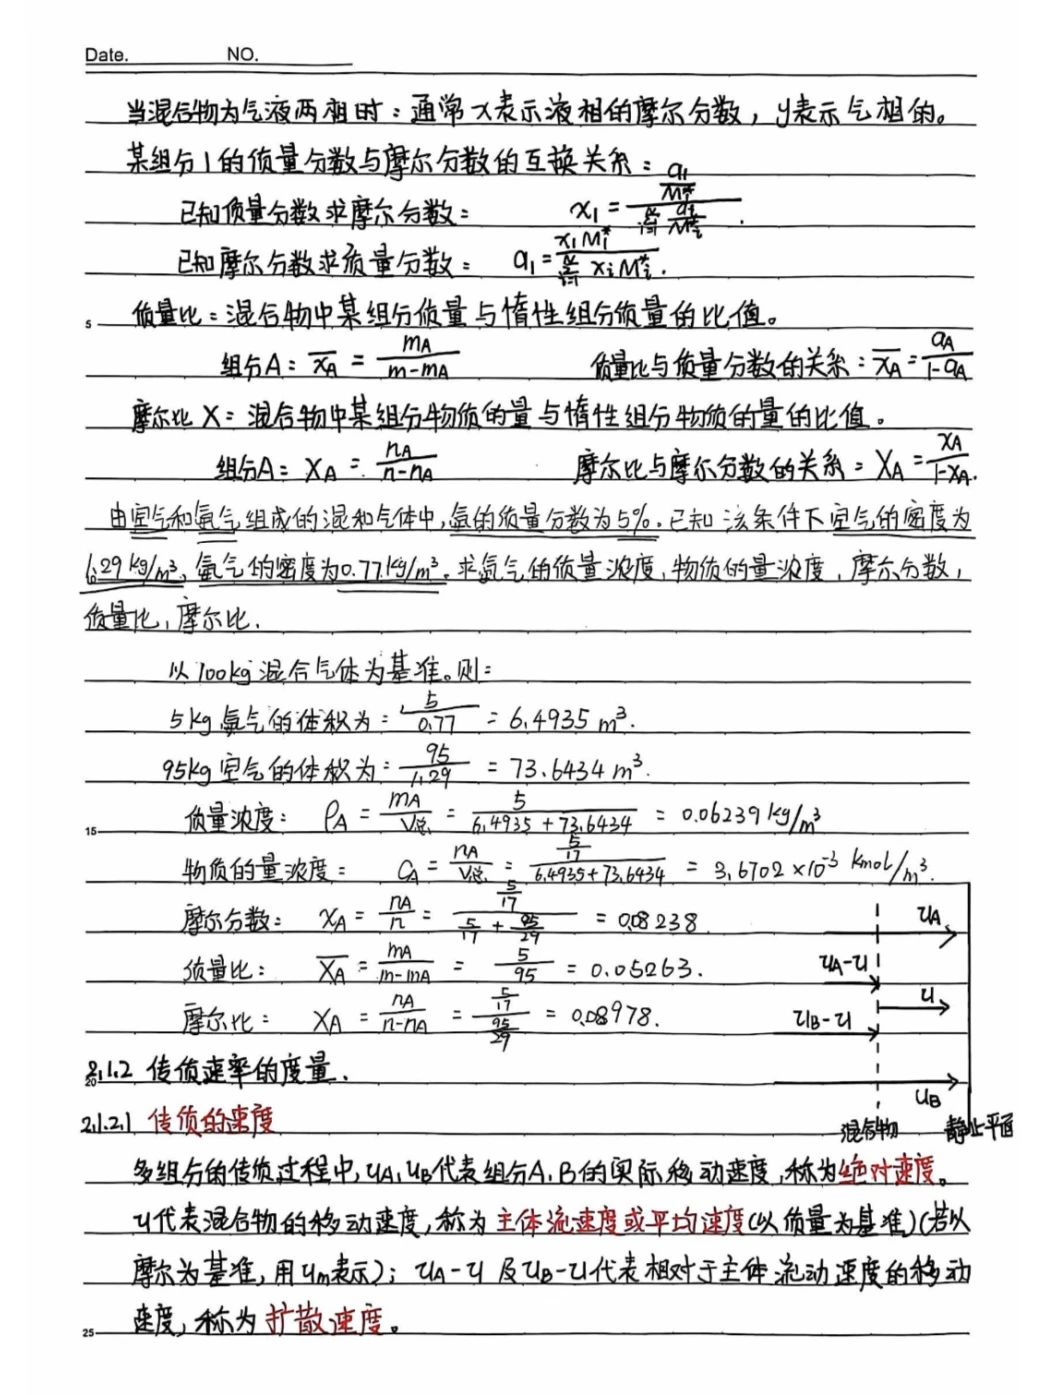 Date. NO.
当混合物为气液两相时：通常x表示液相的摩尔分数，y表示气相的。
某组分1的质量分数与摩尔分数的互换关系：
已知质量分数求摩尔分数： x₁ = (a₁/M₁*) / (Σᵢ₌₁ᴺ aᵢ/Mᵢ*).
已知摩尔分数求质量分数： a₁ = x₁M₁* / Σᵢ₌₁ᴺ xᵢMᵢ*.
5 质量比：混合物中某组分质量与惰性组分质量的比值。
组分A：x̄A = mA/(m-mA) 质量比与质量分数的关系：x̄A = aA/(1-aA)
摩尔比X：混合物中某组分物质的量与惰性组分物质的量的比值。
组分A：XA = nA/(n-nA) 摩尔比与摩尔分数的关系：XA = xA/(1-xA).
由空气和氨气组成的混和气体中，氨的质量分数为5%. 已知该条件下空气的密度为
1.29 kg/m³，氨气的密度为0.77kg/m³. 求氨气的质量浓度，物质的量浓度，摩尔分数，
质量比，摩尔比.
以100kg混合气体为基准。则：
5kg氨气的体积为：5/0.77 = 6.4935 m³.
95kg空气的体积为：95/1.29 = 73.6434 m³.
15 质量浓度： ρA = mA/V总 = 5/(6.4935+73.6434) = 0.06239 kg/m³
物质的量浓度： CA = nA/V总 = (5/17)/(6.4935+73.6434) = 3.6702×10⁻³ kmol/m³.
摩尔分数： xA = nA/n = (5/17)/(5/17 + 95/29) = 0.08238.
质量比： x̄A = mA/(m-mA) = 5/95 = 0.05263.
摩尔比： XA = nA/(n-nA) = (5/17)/(95/29) = 0.08978.
uA
uA-u
u
uB-u
20 2.1.2 传质速率的度量.
uB
2.1.2.1 传质的速度
混合物 静止平面
多组分的传质过程中，uA，uB代表组分A、B的实际移动速度，称为绝对速度。
u代表混合物的移动速度，称为主体流速度或平均速度（以质量为基准）（若以
摩尔为基准，用um表示）；uA-u及uB-u代表相对于主体流动速度的移动
25 速度，称为扩散速度。